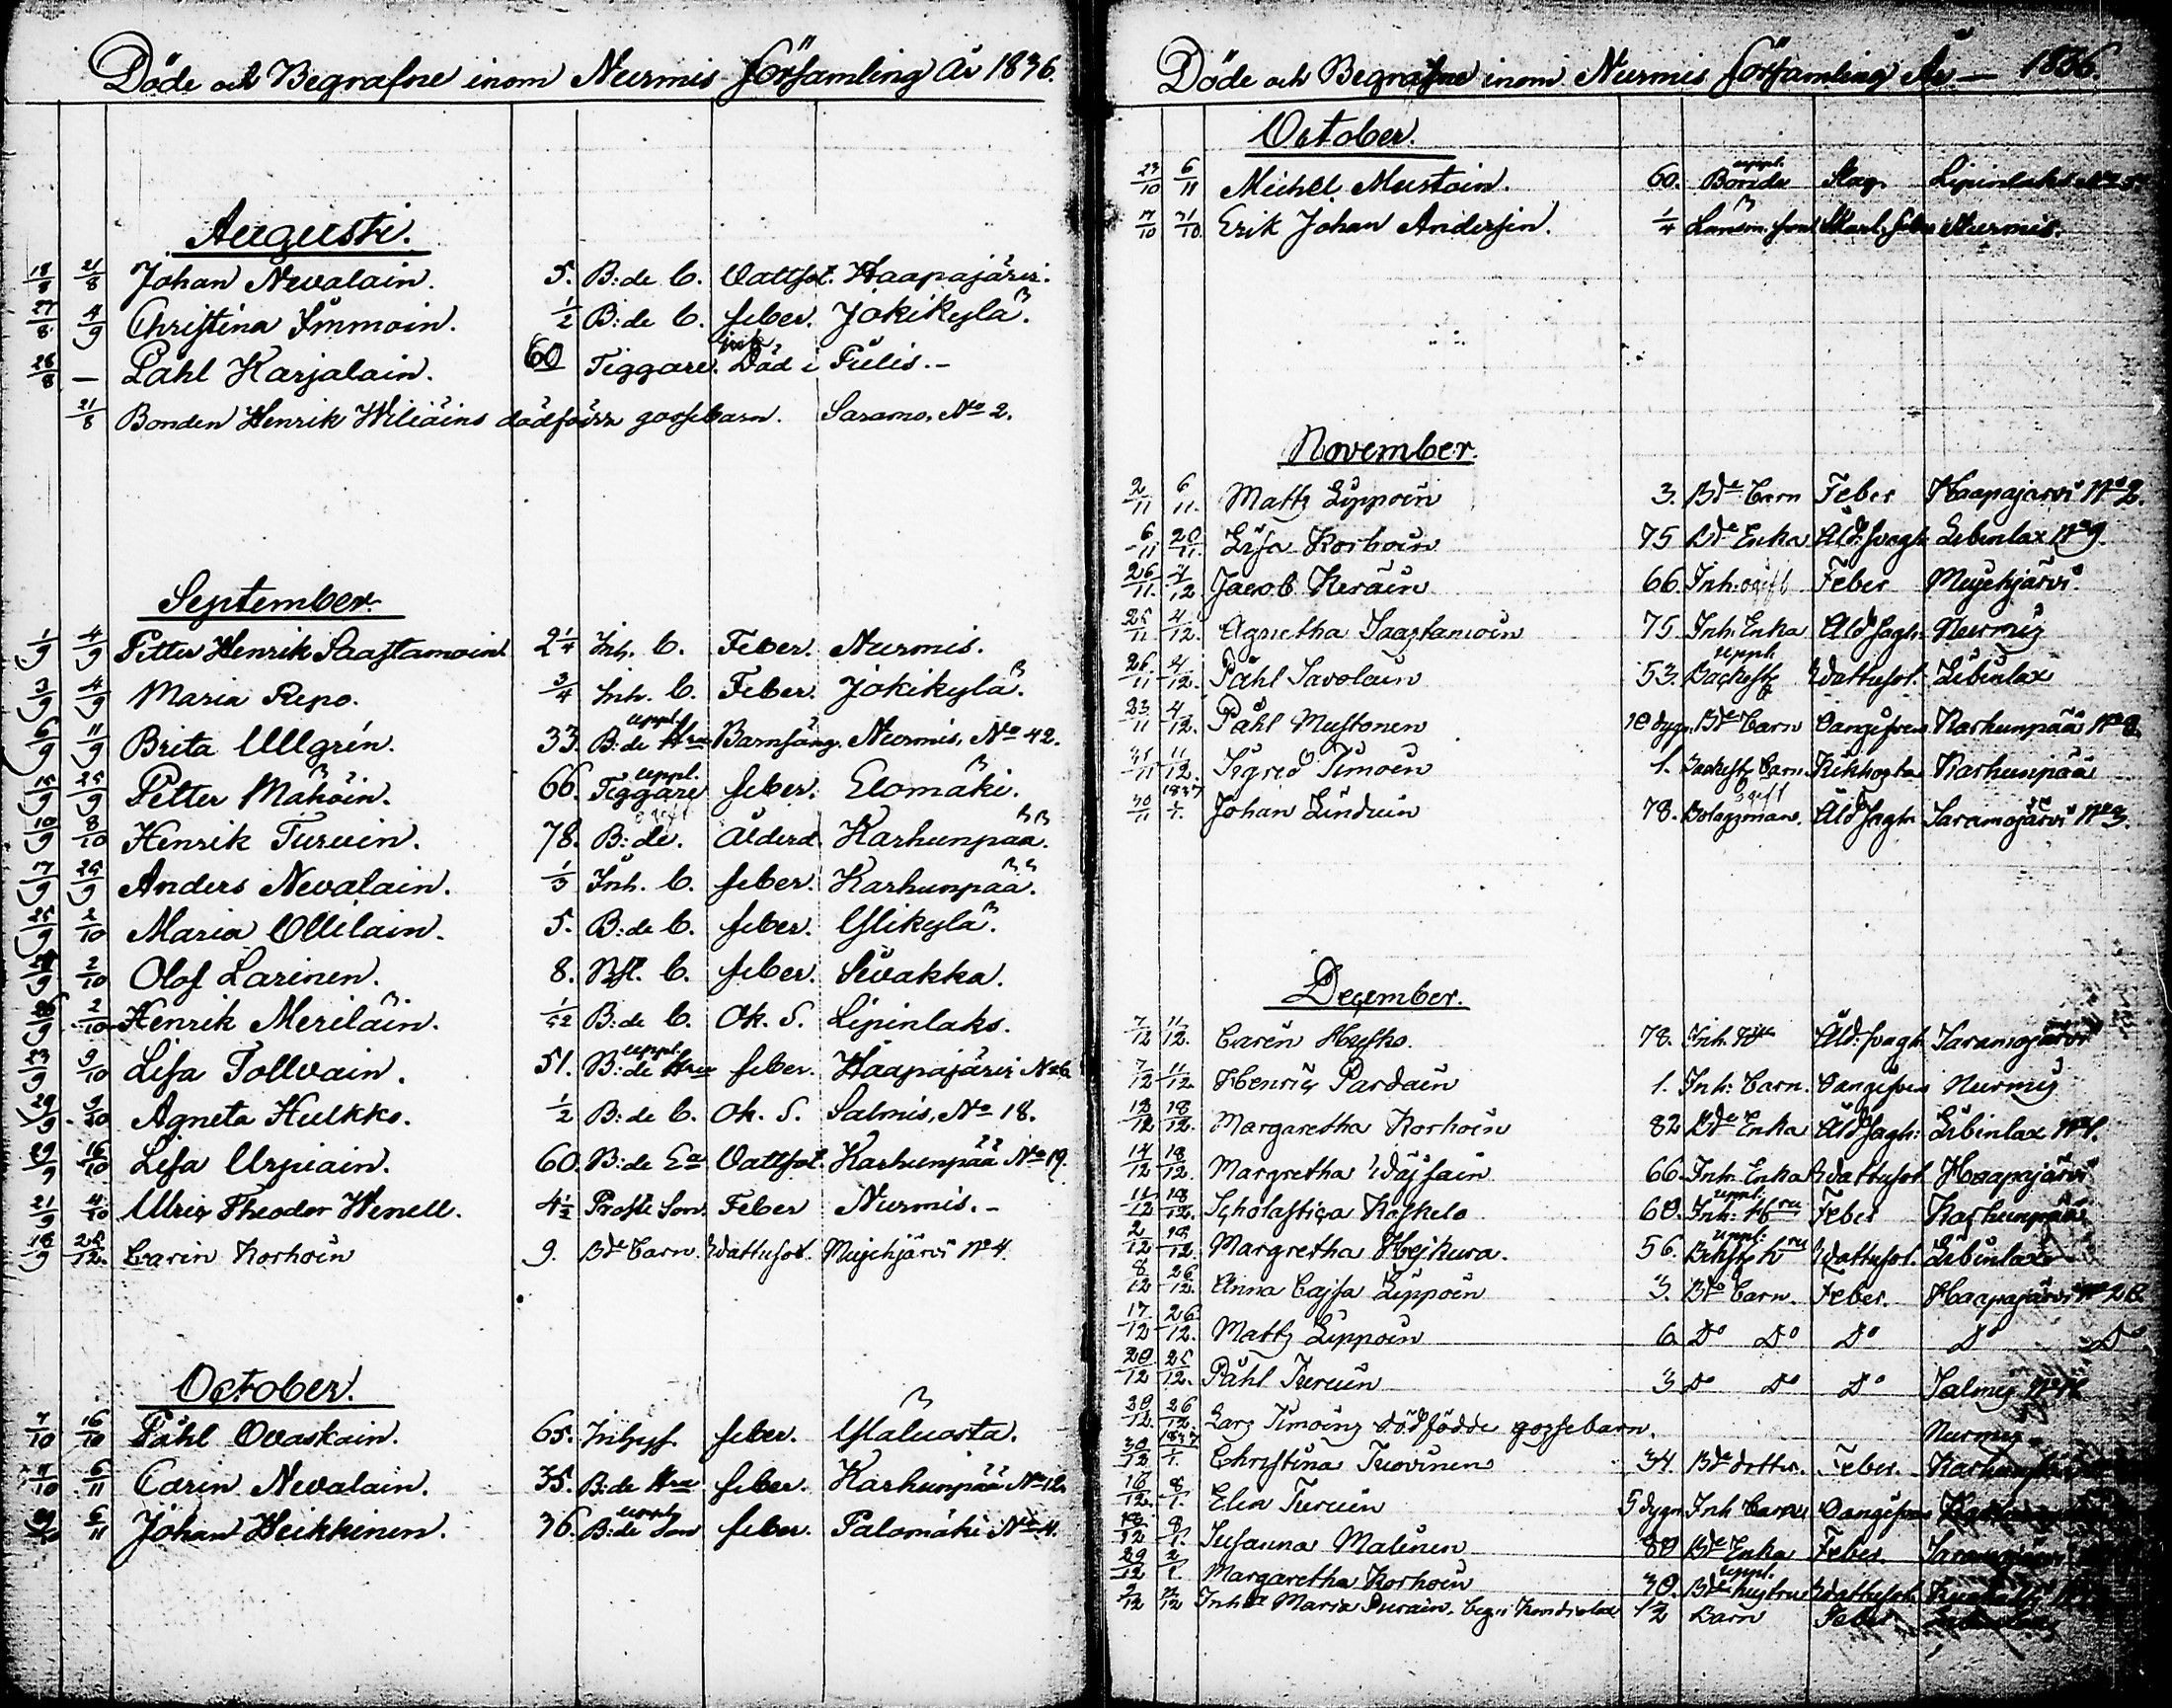 Döde och Begrafne inom Nurmis församling År 1836.
Augusti.
18/8 21/8 Johan Nevalain. 5. B:de C. Vattsot. Haapajärvi.
27/8 4/9 Christina Immoin. 1/2 B:de C. feber. Jokikylä.
28/8 — Påhl Karjalain. 60 Tiggare. Död i Fulis.-
21/8 Bonden Henrik Wiliäins dödfödr gossebarn. Saramo, No 2.
September.
1/9 4/9 Petter Henrik Saastamoin 2 1/4 Inh. C. Feber. Nurmis.
3/9 4/9 Maria Repo. 3/4 Inh. C. Feber. Jokikylä.
6/9 11/9 Brita Ullgrén. 33. B:de uppl. Hru Barnsäng. Nurmis, No 42.
15/9 25/9 Petter Mähöin. 66. Tiggare uppl. feber. Elomäki.
10/9 8/10 Henrik Turuin. 78. B:de. Ålderd. Karhunpää.
7/9 25/9 Anders Nevalain. 1/3 Inh. C. feber. Karhunpää.
25/9 2/10 Maria Ollilain. 5. B:de C. feber. Ylikylä.
2/10 Olof Larinen. 8. C. feber. Sivakka.
26/9 2/10 Henrik Meriläin. 1/52 B:de C. Ok. S. Lipinlaks.
23/9 9/10 Lisa Tollvain. 51. B:de uppl. Hru feber. Haapajärvi No 6
29/9 9/10 Agneta Hulkko. 1/2 B:de C. Ok. S. Salmis, No 18.
29/9 16/10 Lisa Urpiain. 60. B:de Ea Vattsot. Karhunpää No 19.
21/9 4/10 Ulric Theodor Wenell. 4 1/2 Prosti Son. Feber Nurmis.-
18/9 26/12. Carin Korhoin 9. Bde Barn. Wattusot. Mujehjärvi No 4.
October.
7/10 16/10 Påhl Ovaskain. 65. Inhys. feber. Ylaluosta.
9/10 6/11 Carin Nevalain. 35. B:de Hru feber. Karhunpää No 12.
6/11 Johan Heikkinen. 36. B:de uppl. Son feber. Palomäki No 4.
Döde och Begrafne inom Nurmis församling År — 1836
October.
23/10 6/11 Michel Mustoin. 60. uppl. Bonde Slag. Lipinlaks No 5.
17/10 31/10 Erik Johan Andersin. 1/4 Länsm. Nurmis.
November.
2/11 6/11. Matts Lippoin 3. Bde Barn Feber Haapajärvi No 2.
6/11 20/11. Lisa Korhoin 75 Bde Enka Åld: svagh Libinlax No 9.
26/11. 4/12 Jacob Keräin 66. Inh. ogift Feber Mujehjärvi
25/11 4/12. Agnetha Saastamoin 75. Inh. Enka Åld. svagh. Nurmis
26/11 4/12. Påhl Savolain 53. uppl. Backest Wattusot. Libinlax
23/11 4/12. Påhl Mustonen 10 dygn Bde Barn Oangifven Karhunpää No 8.
11/12. Sigrid Timoin 1. Backest. Barn Kikhosta Karhunpää
30/11 1837 1/1. Johan Linduin 78. Bolagsman. Åld. svagh Saramojärvi No 3.
December.
7/12 11/12. Carin Husko. 78. Inh. Åld: svagh Saramojärvi
7/12 11/12. Henric Pardain 1. Inh: Barn. Oangifven Nurmis
12/12 18/12. Margaretha Korhoin 82 Bde Enka Åld. svagh: Libinlax No 1.
14/12 18/12. Margretha Wäisäin 66. Inh. Enka Wattusot Haapajärvi
11/12 18/12. Scholastica Koskelo 60. uppl. Inh: Hru Feber Karhunpää
2/12 19/12 Margretha Heikura. 56. uppl: Bckst. hru Wattusot. Libinlax
8/12 26/12. Anna Cajsa Lippoin 3. Bde Barn. Feber. Haapajärvi No 20
17/12 26/12. Matts Lippoin 6. Do Do Do Do Do
20/12 25/12. Påhl Turuin 3 Do Do Do Salmis
20/12 26/12. Lars Timoins dödfödde gossebarn. Nurmis
30/12 1837 1/1. Christina Tuovinen 34. Bde dotter. Feber.
16/12. 8/1. Elin Turuin 5 dygn Inh Barn Oangifven
8/1. Susanna Malinen 80 Bde Enka Feber.
29/12 2/1. Margaretha Korhoin 30. uppl. Bde hustru Wattusot.
9/12 Inh Maria Purain. begr. i Kondiolax 12 Barn Feber